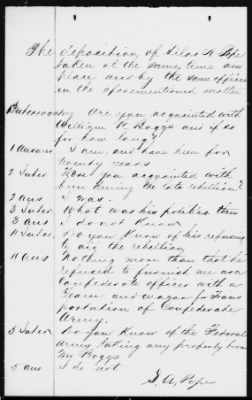 The deposition of Silas A Pope
taken at the same time and
place and by the same officer
in the aforementioned matter
Interrogatory Are you acquainted with
William R. Boggs and if so
for how long?
1 Answer I am, and have been for
twenty years
2 Inter Were you acquainted with
him during the late rebellion?
2 Ans I was.
3 Inter What was his politics then
3 Ans I do not know
4 Inter Do you know of his refusing
to aid the rebellion
4 Ans Nothing more than that he
refused to furnish me as a
Confederate officer with a
Team and wagon for Trans
portation of Confederate
Army.
5 Inter Do you know of the Federal
Army taking any property from
Mr Boggs
5 Ans I do not
S. A. Pope